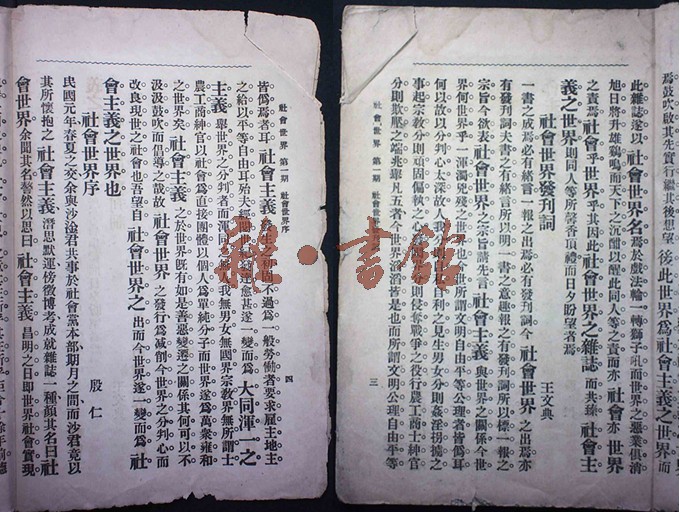 焉鼓吹啟其先實行繼其後想望後此世界爲社會主義之世界而
此雜誌遂以社會世界名焉於戲法輪一轉獅子吼而世界之惡業俱清
旭日將升雄鷄鳴而天下之沉酣以醒此同人等之責而亦社會亦世界
之責焉社會乎世界乎其因此社會世界之雜誌而共臻社會主
義之世界則同人等所馨香頂禮而日夕盼望者焉
社會世界發刊詞
王文典
一書之成焉必有緒言一報之出焉必有發刊詞今社會世界之出焉亦
有發刊詞夫書之有緒言所以明一書之意趣報之有發刊詞所以標一報之
宗旨今欲表社會世界之宗旨請先言社會主義與世界之關係今世
界何世界乎一渾濁兇殘之世界也今世所謂文明自由平等公理者皆爲耳
何以故以分判心太深故人我自利之見生男女分則姦淫拐擄之
事起宗教分則頑固偏執之心則發奪戰爭之役行農工商士紳官
分則欺壓之端兆舉凡五者今世界滔滔皆是也而所謂文明公理自由平等
社會世界 第一期 社會世界序
三
社會世界 第一期 社會世界序
四
皆爲爲者耳社會主義不過爲一般勞働者要求雇主地主
之給以平等自由耳殆夫經愈甚遂一變而爲大同渾一之
主義舉世界之分判者而渾同我無男女無國界宗教界無所謂士
農工商紳官以社會爲直接團體以個人爲單純分子而世界遂爲萬衆雍和
之世界矣社會主義之於世界旣有如是善惡變遷之關係其何可以不
汲汲鼓吹而倡導之哉故社會世界之發行爲減削今世界之分判心而
改良現世之社會也吾望自社會世界之出而今世界遂一變而爲社
會主義之世界也
社會世界序
殷仁
民國元年春夏之交余與沙淦君共事於社會黨本部期月之間而沙君竟以
其所懷抱之社會主義潛思默運旁徵博考成就雜誌一種顏其名曰社
會世界余聞其名瞢然以思曰社會主義昌明之日卽世界社會實現
程書館